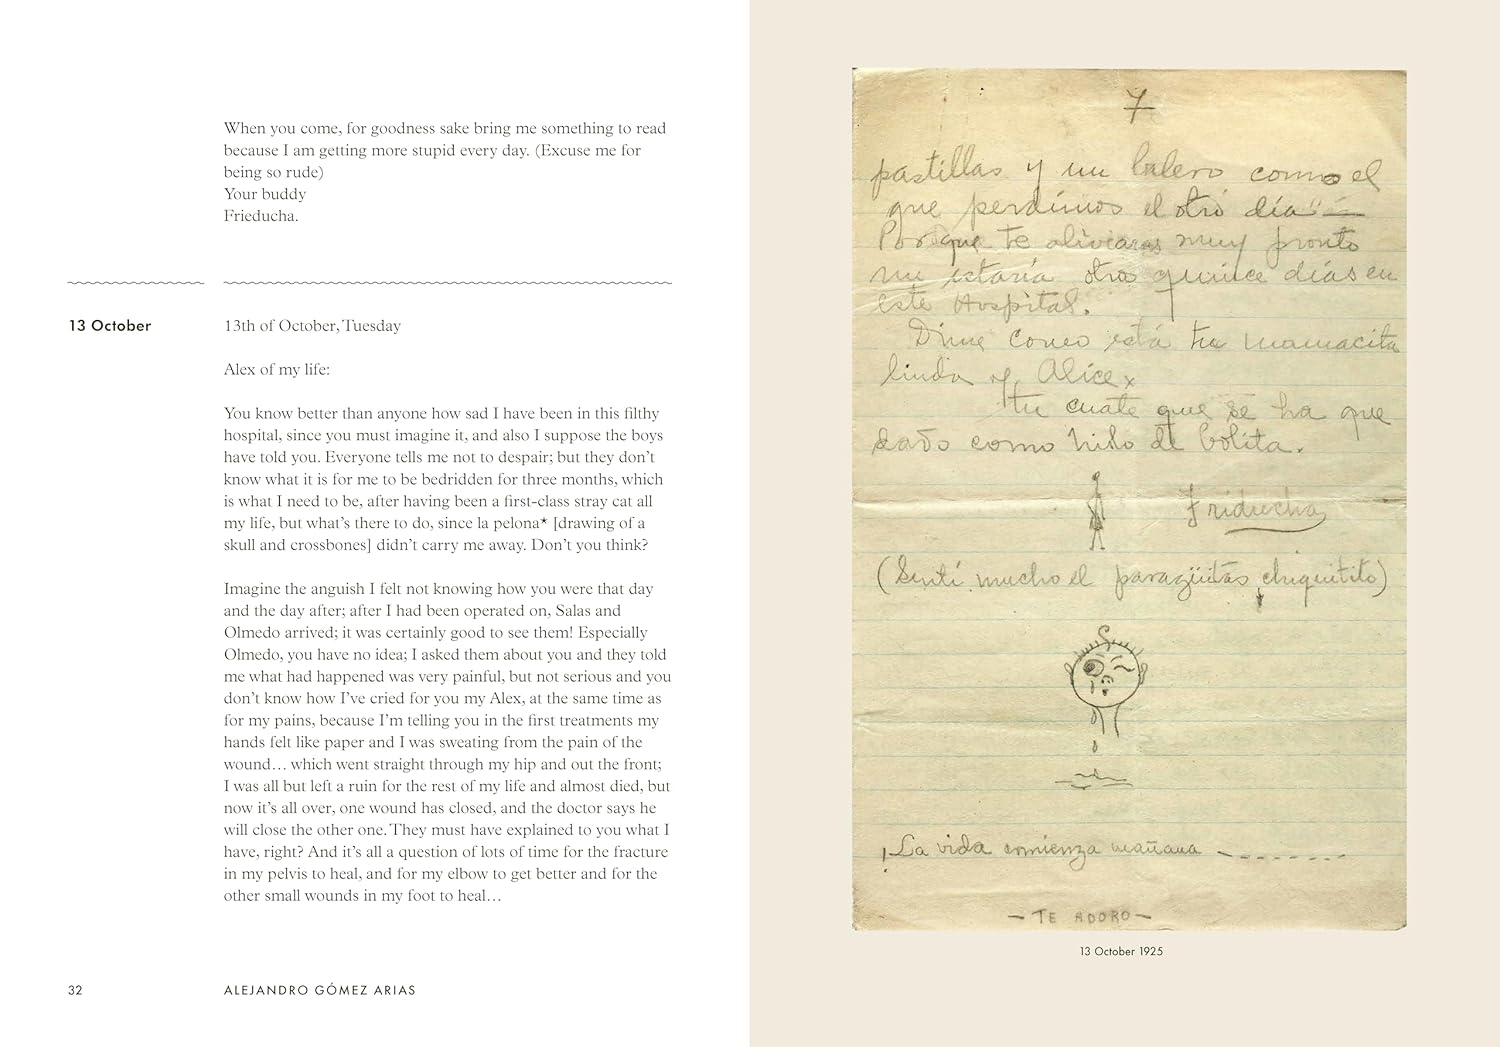 When you come, for goodness sake bring me something to read
because I am getting more stupid every day. (Excuse me for
being so rude)
Your buddy
Frieducha.
13 October
13th of October, Tuesday
Alex of my life:
You know better than anyone how sad I have been in this filthy
hospital, since you must imagine it, and also I suppose the boys
have told you. Everyone tells me not to despair; but they don't
know what it is for me to be bedridden for three months, which
is what I need to be, after having been a first-class stray cat all
my life, but what's there to do, since la pelona* [drawing of a
skull and crossbones] didn't carry me away. Don't you think?
Imagine the anguish I felt not knowing how you were that day
and the day after; after I had been operated on, Salas and
Olmedo arrived; it was certainly good to see them! Especially
Olmedo, you have no idea; I asked them about you and they told
me what had happened was very painful, but not serious and you
don't know how I've cried for you my Alex, at the same time as
for my pains, because I'm telling you in the first treatments my
hands felt like paper and I was sweating from the pain of the
wound… which went straight through my hip and out the front;
I was all but left a ruin for the rest of my life and almost died, but
now it's all over, one wound has closed, and the doctor says he
will close the other one. They must have explained to you what I
have, right? And it's all a question of lots of time for the fracture
in my pelvis to heal, and for my elbow to get better and for the
other small wounds in my foot to heal…
32
ALEJANDRO GÓMEZ ARIAS
7
pastillas y un balero como el
que perdimos el otro día" —
Porque te aliviaras muy pronto
me estaría otros quince días en
este Hospital.
Dime como está tu mamacita
linda y Alice
tu cuate que se ha que
dado como hilo de bolita.
Friducha
(Sentí mucho el paragüitas chiquitito)
¡La vida comienza mañana - - - - - - -
— TE ADORO —
13 October 1925